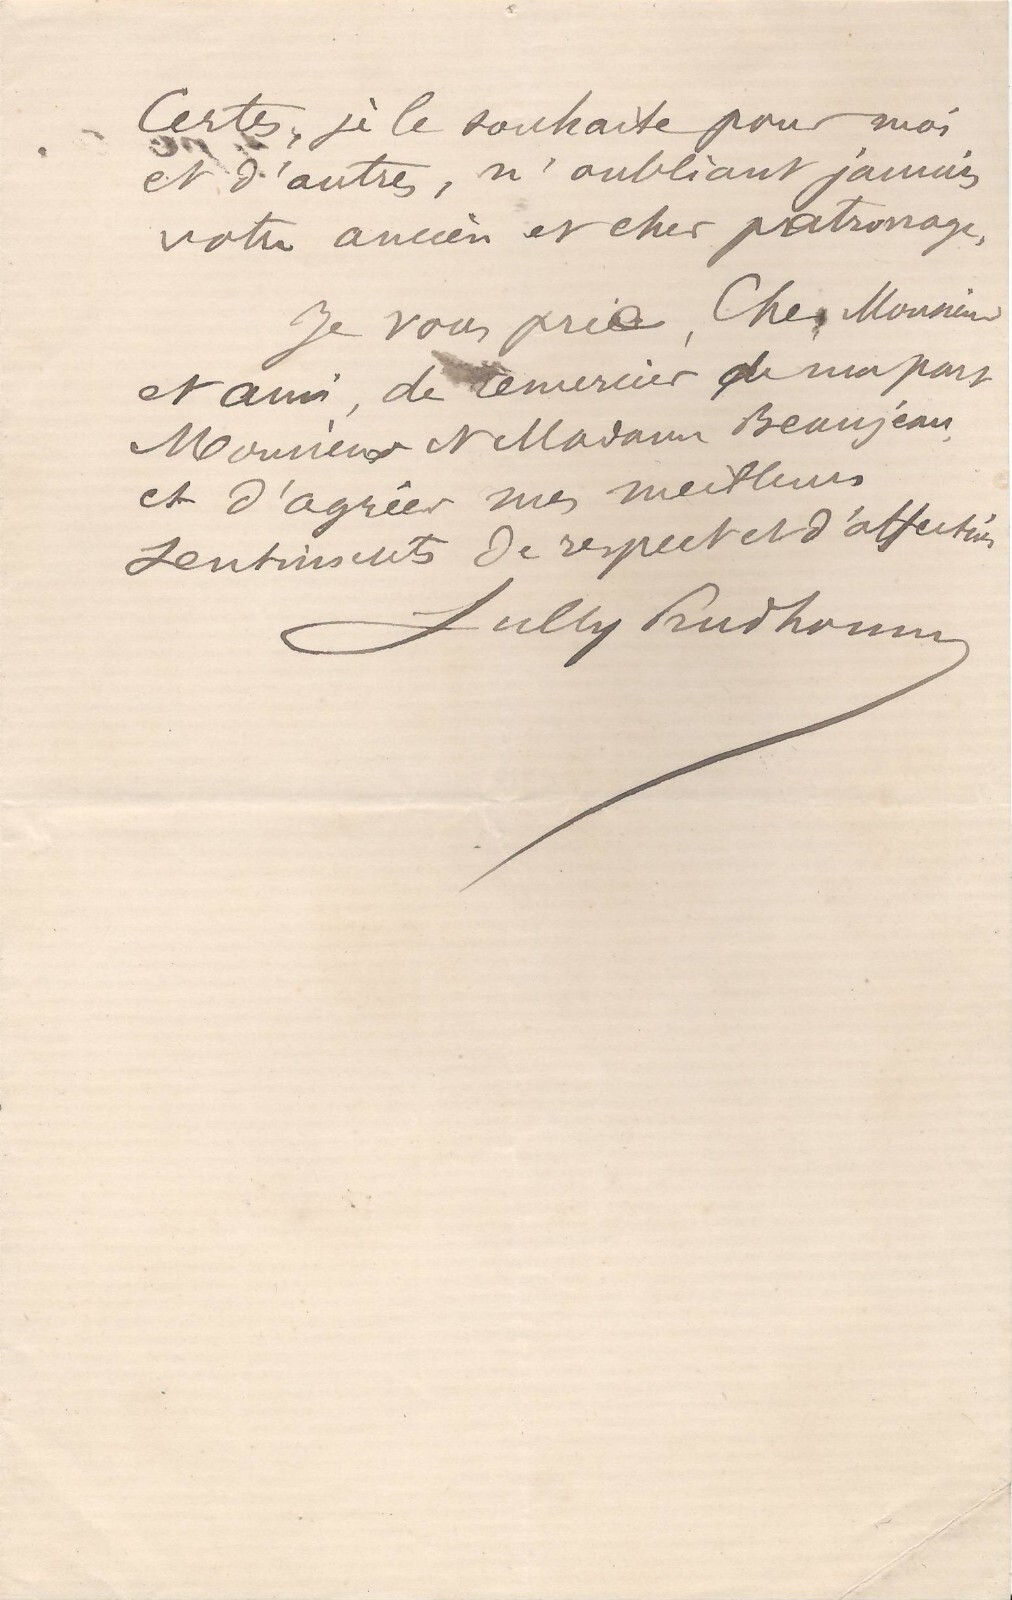 Certes, je le souhaite pour moi
et d'autres, n'oubliant jamais
votre ancien et cher patronage.
Je vous prie, Cher Monsieur
et ami, de remercier de ma part
Monsieur et Madame Beaujean,
et d'agréer mes meilleurs
sentiments de respect et d'affection
Sully Prudhomme